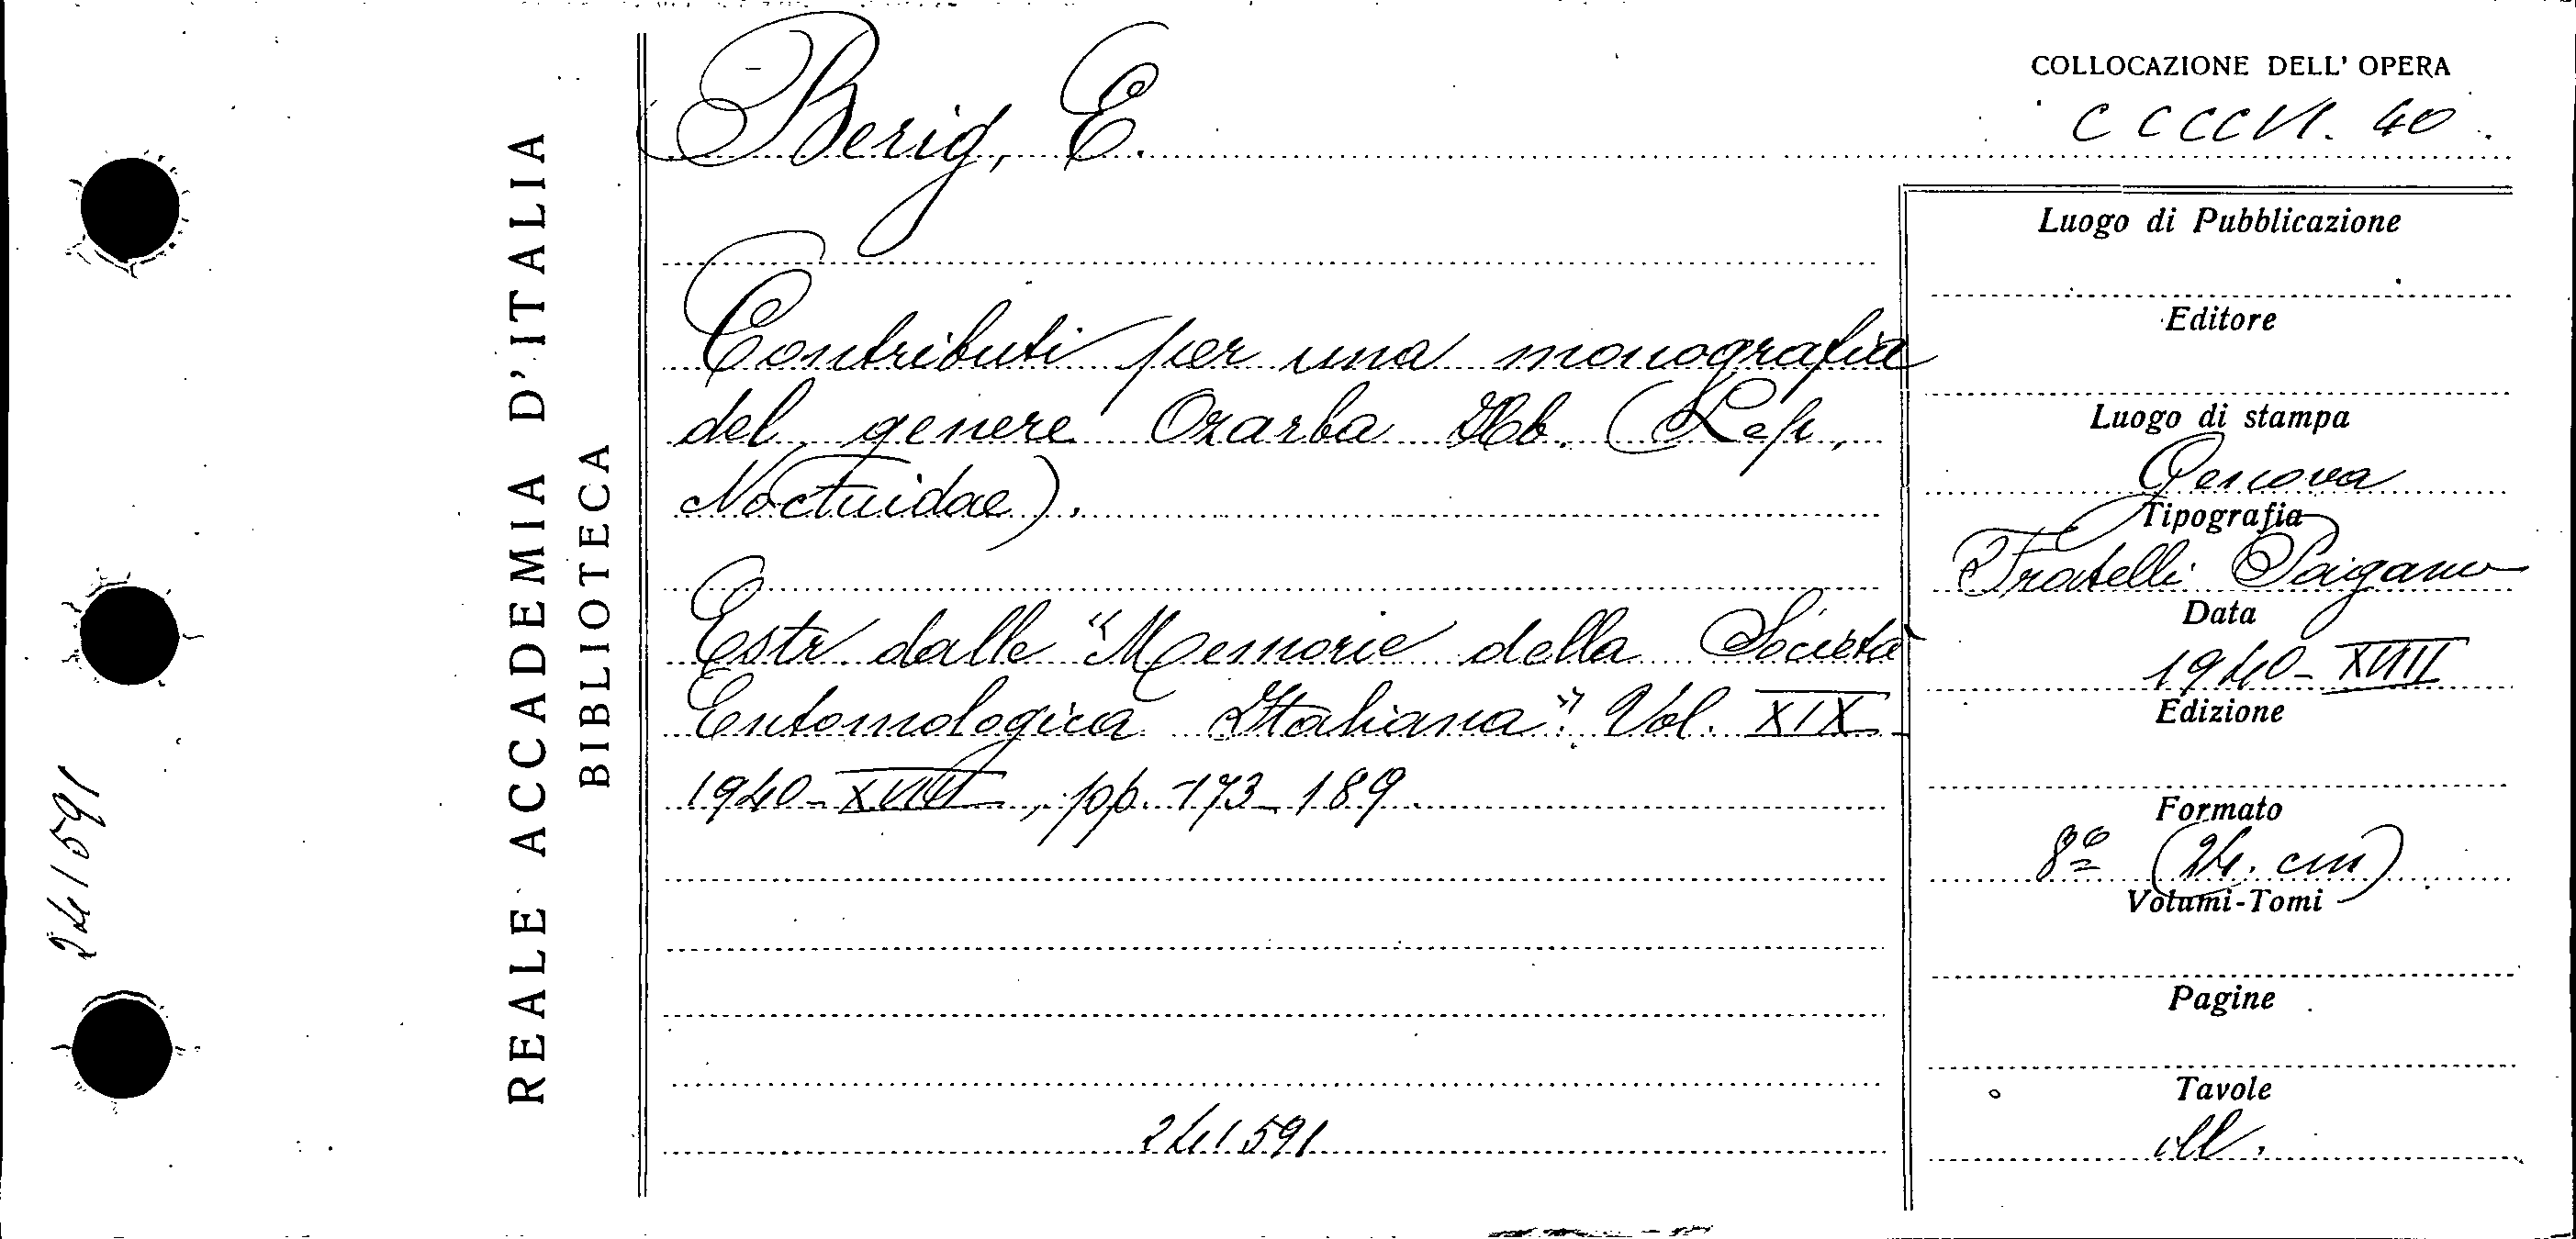 REALE ACCADEMIA D'ITALIA
BIBLIOTECA
241591
Berig, E.
Contributi per una monografia
del genere Ozarba Hb. (Lep.,
Noctuidae).
Estr. dalle "Memorie della Società
Entomologica Italiana". Vol. XIX -
1940 - XVIII, pp. 173-189.
241591
COLLOCAZIONE DELL' OPERA
CCCCVI. 40.
Luogo di Pubblicazione
Editore
Luogo di stampa
Genova
Tipografia
Fratelli Pagano
Data
1940 - XVIII
Edizione
Formato
8º (24. cm)
Volumi-Tomi
Pagine
Tavole
ill.